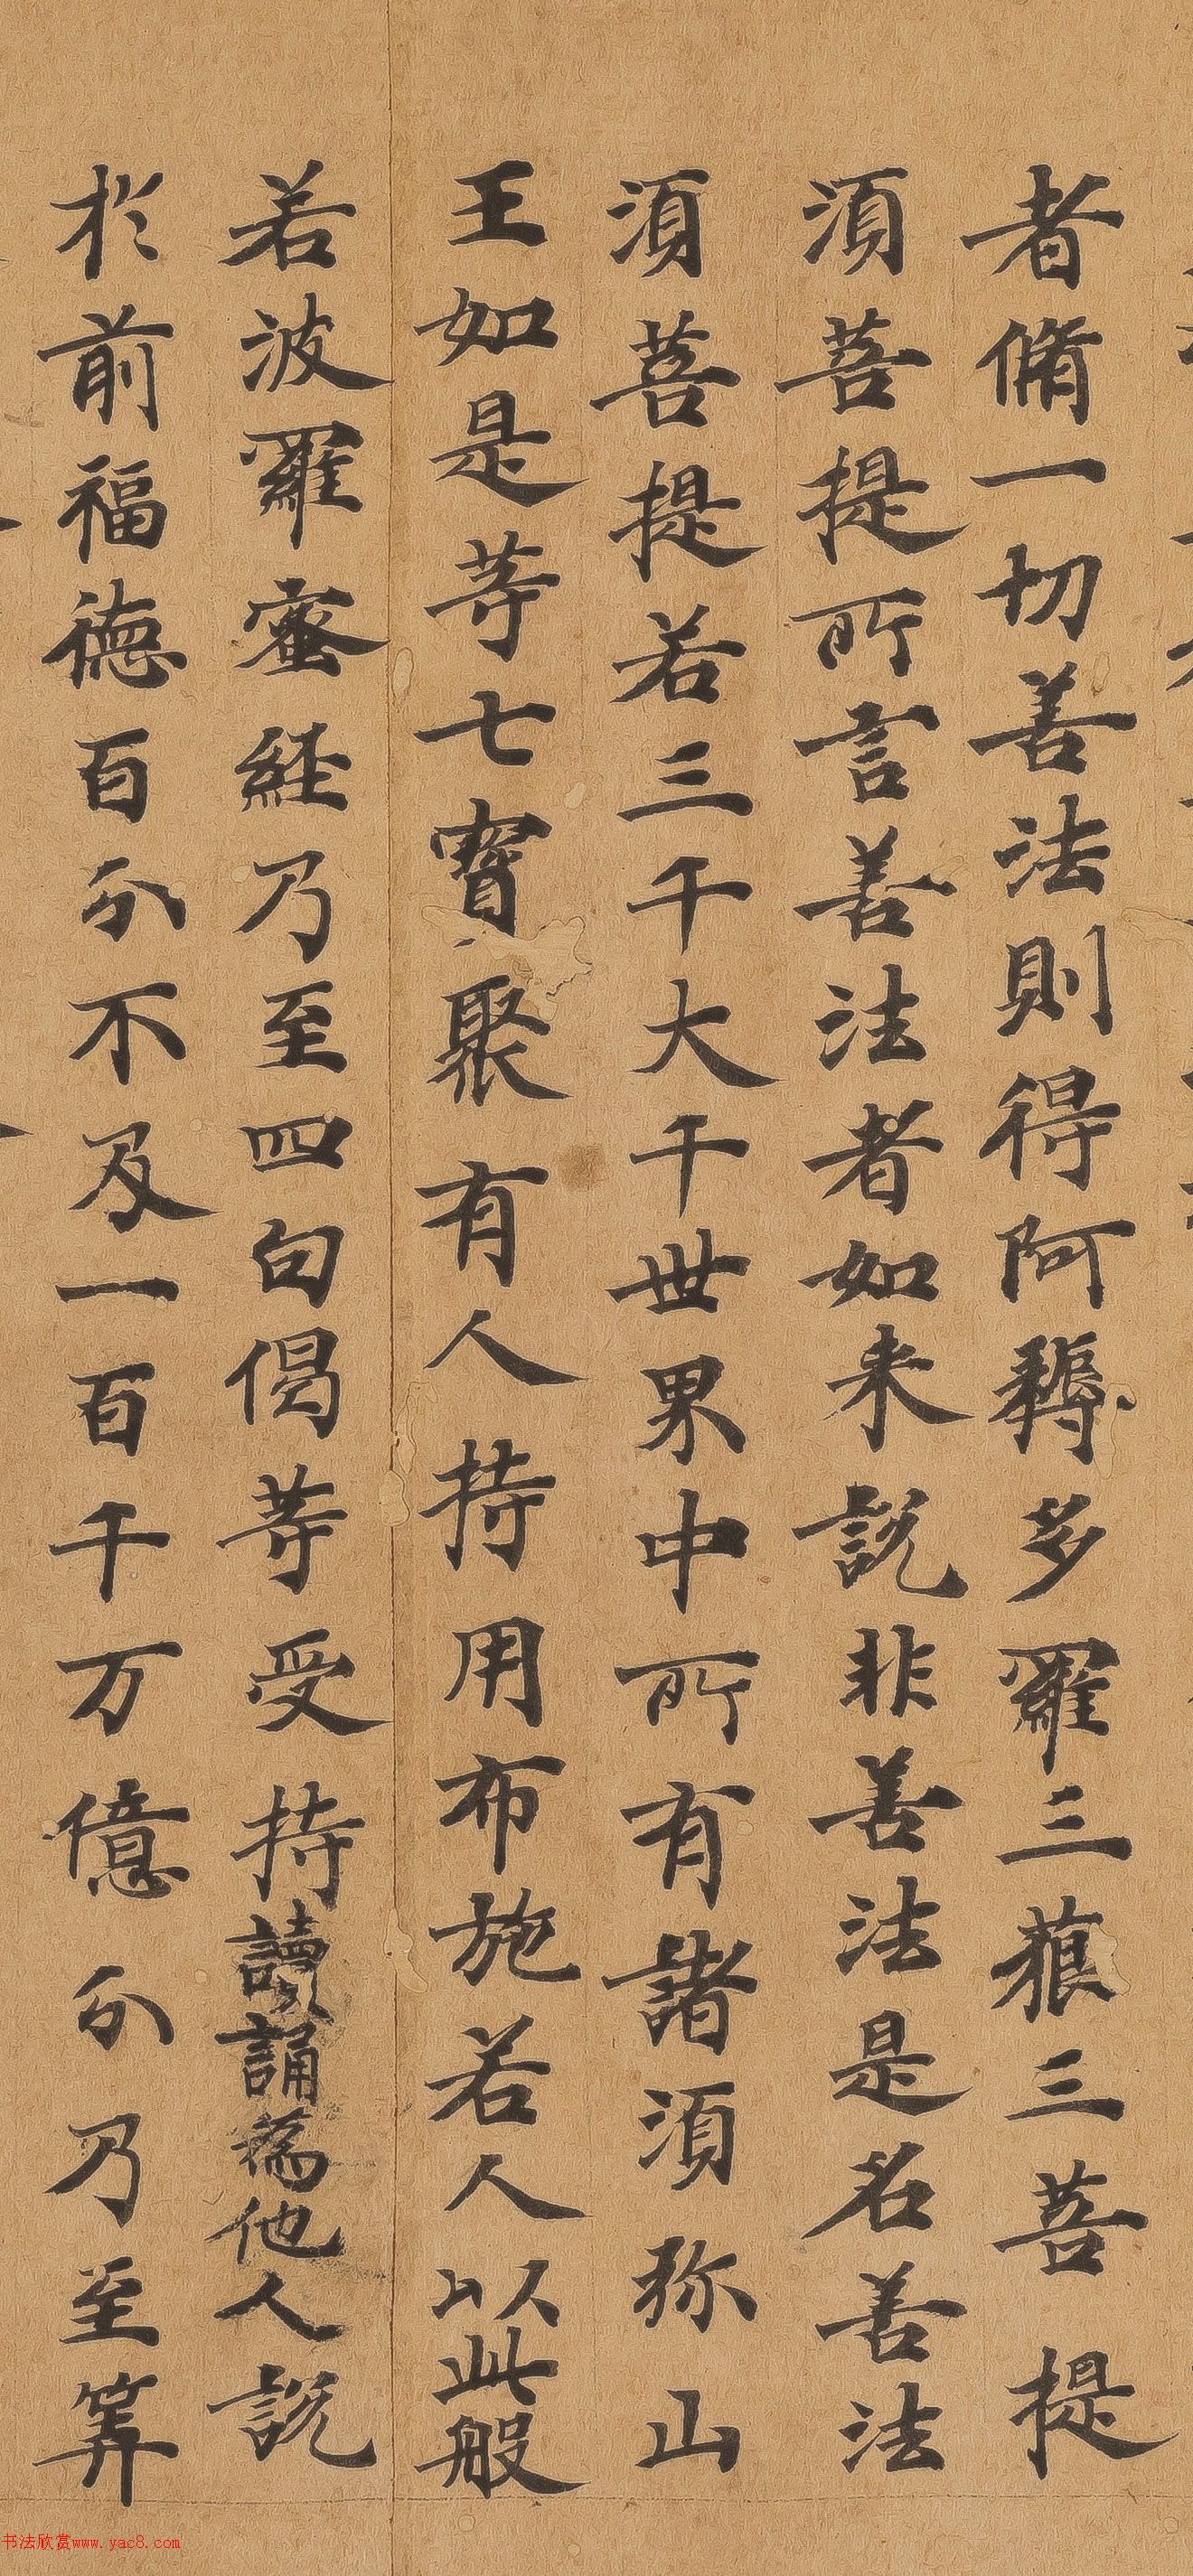 者脩一切善法則得阿耨多羅三藐三菩提
湏菩提所言善法者如来說非善法是名善法
湏菩提若三千大千世界中所有諸湏弥山
王如是等七寳聚有人持用布施若人以此般
若波羅蜜經乃至四句偈等受持讀誦為他人說
於前福德百分不及一百千万億分乃至筭
书法欣赏www.yac8.com